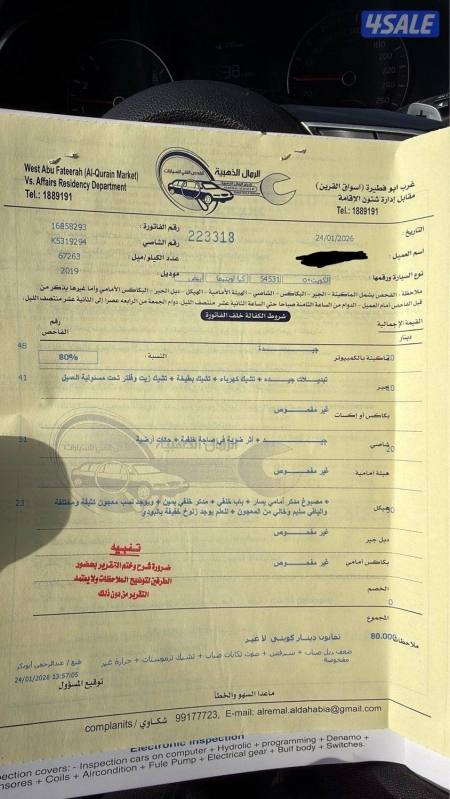 4SALE
West Abu Fateerah (Al-Qurain Market)
Vs. Affairs Residency Department
Tel.: 1889191
الرمال الذهبية
للفحص الفني للسيارات
غرب ابو فطيرة (اسواق القرين)
مقابل إدارة شئون الاقامة
Tel.: 1889191 (ت)
رقم الفاتورة: 16858293
223318
التاريخ: 24/01/2026
رقم الشاصي: K5319294
اسم العميل:
عدد الكيلو/ميل: 67263
نوع السيارة ورقمها: الكويت-٥ 54531 كيا اوبتيما أبيض
موديل: 2019
ملاحظة : الفحص يشمل الماكينة - الجير - البكاكس - الشاصي - الهيئة الأمامية - الهيكل - دبل الجير - البكاكس الأمامي وأما غيرها يذكر من
قبل الفاحص أمام العميل - الدوام من الساعة الثامنة صباحا حتي الساعة الثانية عشر منتصف الليل، دوام الجمعة من الرابعة عصرا إلى الثانية عشر منتصف الليل.
شروط الكفالة خلف الفاتورة
القيمة الإجمالية
دينار
رقم الفاحص
ماكينة بالكمبيوتر 20 جيــــدة 48
النسبة: 80%
جير تبديلات جيـده + تشيك كهرباء + تشيك بطيفة + تشيك زيت وفلتر تحت مسئولية العميل 41
بكاكس أو إكسات غير مفحوص
شاصي 20 جيــــد + أثر ضربة في صاجة خلفية + حكات أرضية 31
هيئة امامية غير مفحوص
هيكل + مصبوغ مدكر أمامي يسار + باب خلفي + مدكر خلفي يمين + ويوجد نصب معجون كثيفة ومختلفة 23
والباقي سليم وخالي من المعجون + للعلم يوجد زلوخ خفيفة بالبودي
دبل جير غير مفحوص
بكاكس أمامي غير مفحوص
الخصم 0
المجموع
80.000 ثمانون دينار كويتي لا غير
تنبيه
ضرورة شرح وختم التقرير بحضور
الطرفين لتوضيح الملاحظات ولا يعتمد
التقرير من دون ذلك
ملاحظات: ضعف دبل صباب + سيرفس + صوت تكايات صباب + تشيك ترموستات + حرارة غير
مفحوصة
طبع / عبدالرحمن أبوبكر
24/01/2026 13:57:05
توقيع المسؤول
ماعدا السهو والخطأ
complanits / شكاوي 99177723, E-mail: alremal.aldahabia@gmail.com
Electronic Inspection
pection covers: - Inspection cars on computer + Hydrolic + programming + Denamo +
nsores + Coils + Aircondition + Fule Pump + Electrical gear + Bulf body + Switches.